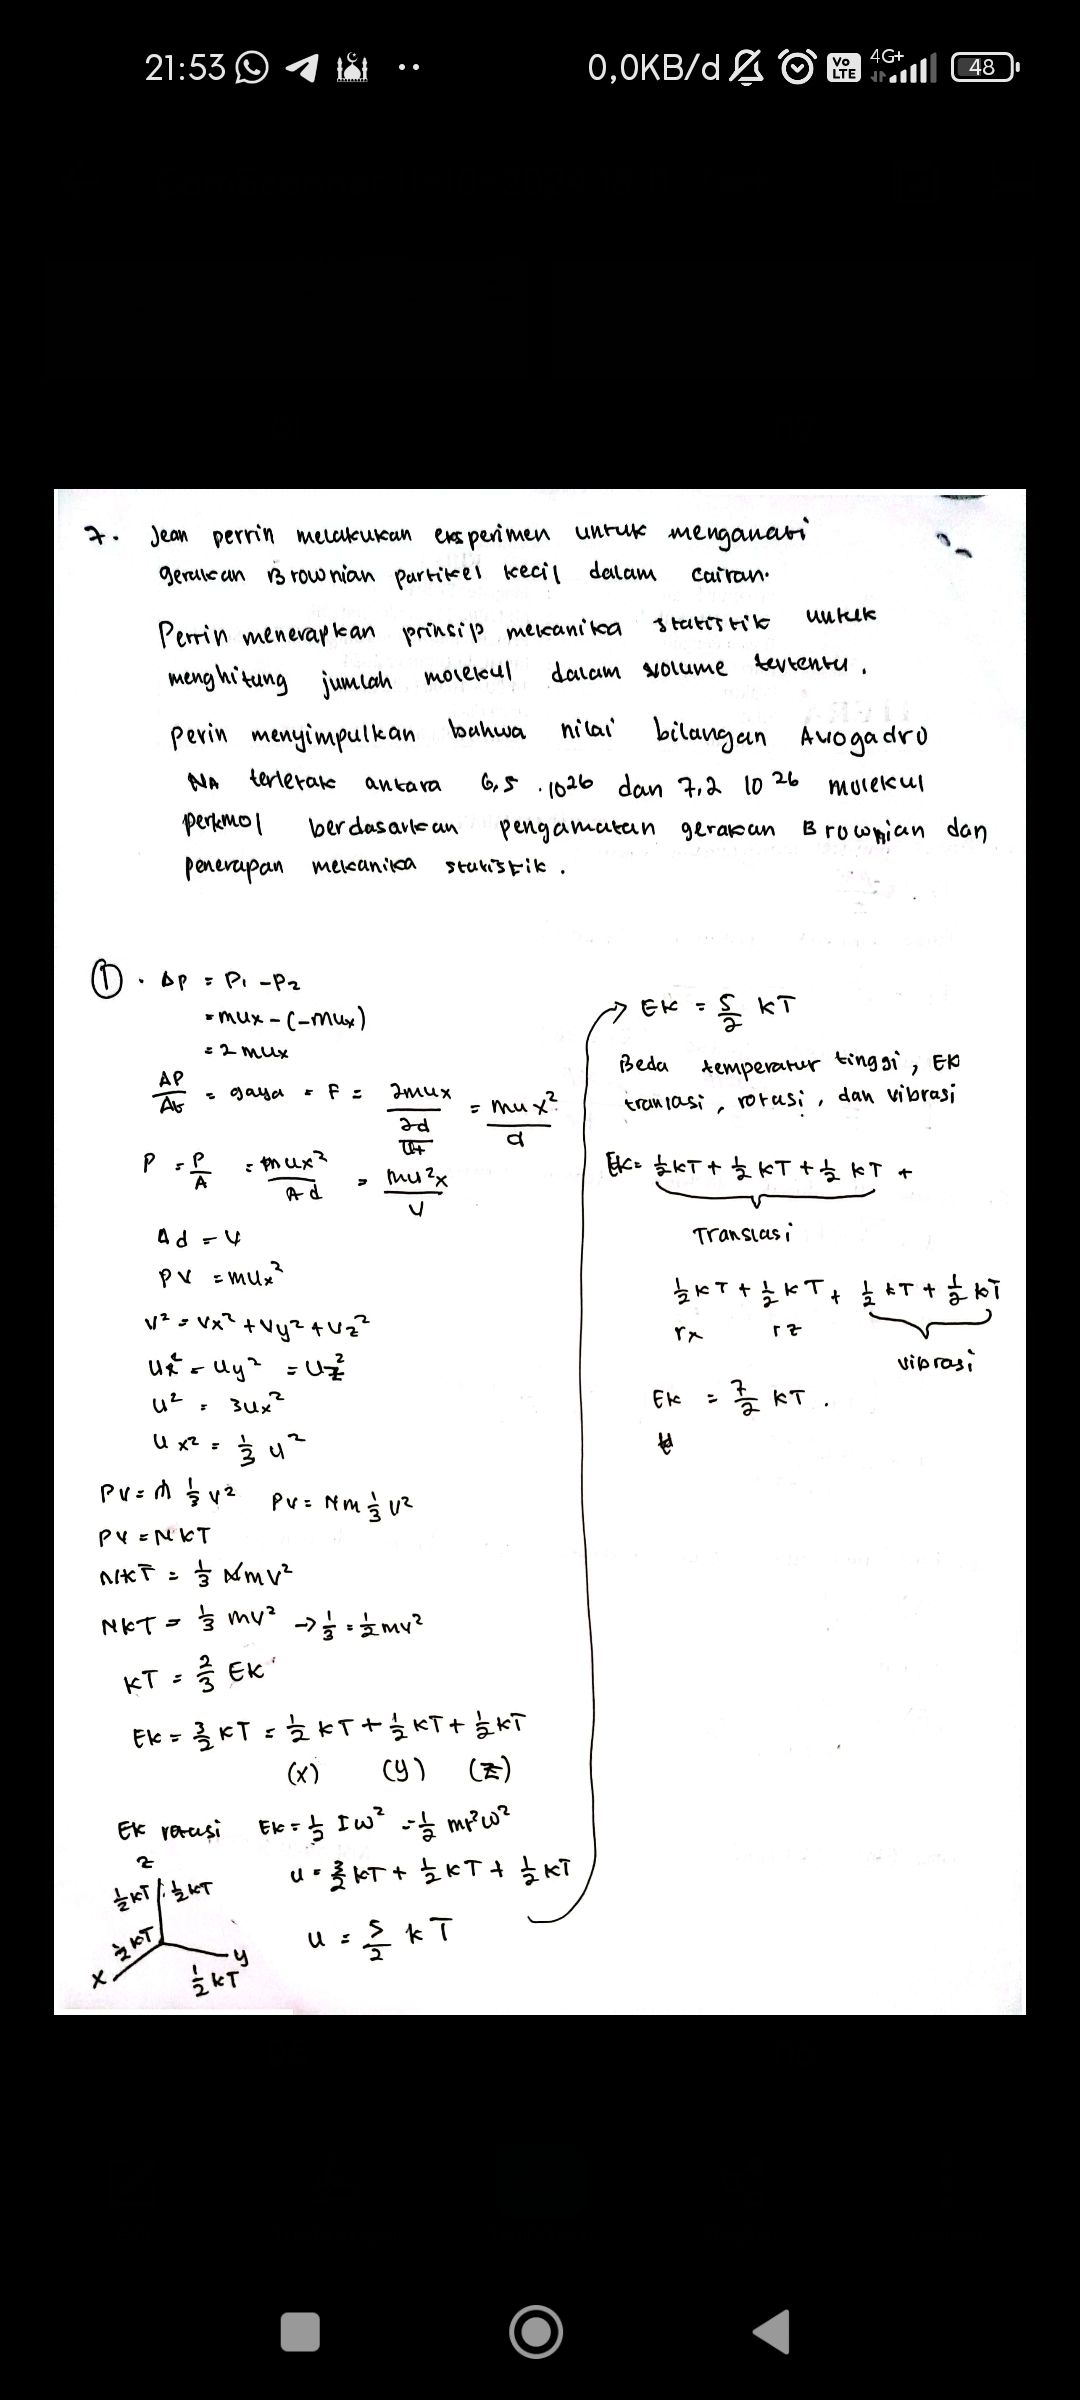 21:53 0,0KB/d Vo LTE 4G+ 48
7. Jean perrin melakukan eksperimen untuk menganati
gerakan Brownian partikel kecil dalam cairan.
Perrin menerapkan prinsip mekanika statistik untuk
menghitung jumlah molekul dalam volume tertentu.
Perin menyimpulkan bahwa nilai bilangan Avogadro
NA terletak antara 6,5 . 10²⁶ dan 7,2 10²⁶ molekul
perkmol berdasarkan pengamatan gerakan Brownian dan
penerapan mekanika statistik.
① . Δp = P₁ - P₂
= mux - (-mux)
= 2 mux
ΔP/Δt = gaya = F = 2mux / (2d/ux) = mux²/d
P = P/A = mux²/Ad = mu²x/V
Ad = V
PV = mux²
V² = Vx² + Vy² + Vz²
Ux² = Uy² = Uz²
U² = 3Ux²
Ux² = 1/3 U²
PV = m 1/3 V² PV = Nm 1/3 V²
PV = NKT
NKT = 1/3 NmV²
NKT = 1/3 mV² → 1/3 = 1/2 mv²
KT = 2/3 EK
EK = 3/2 KT = 1/2 KT + 1/2 KT + 1/2 KT
(x) (y) (z)
EK rotasi EK = 1/2 Iω² = 1/2 mr²ω²
z
1/2 KT 1/2 KT
1/2 KT
x y
1/2 KT
U = 3/2 KT + 1/2 KT + 1/2 KT
U = 5/2 kT
→ EK = 5/2 KT
Beda temperatur tinggi, EK
tranlasi, rotasi, dan vibrasi
EK = 1/2 KT + 1/2 KT + 1/2 KT +
Translasi
1/2 KT + 1/2 KT + 1/2 KT + 1/2 KT
rx rz
vibrasi
EK = 7/2 KT .